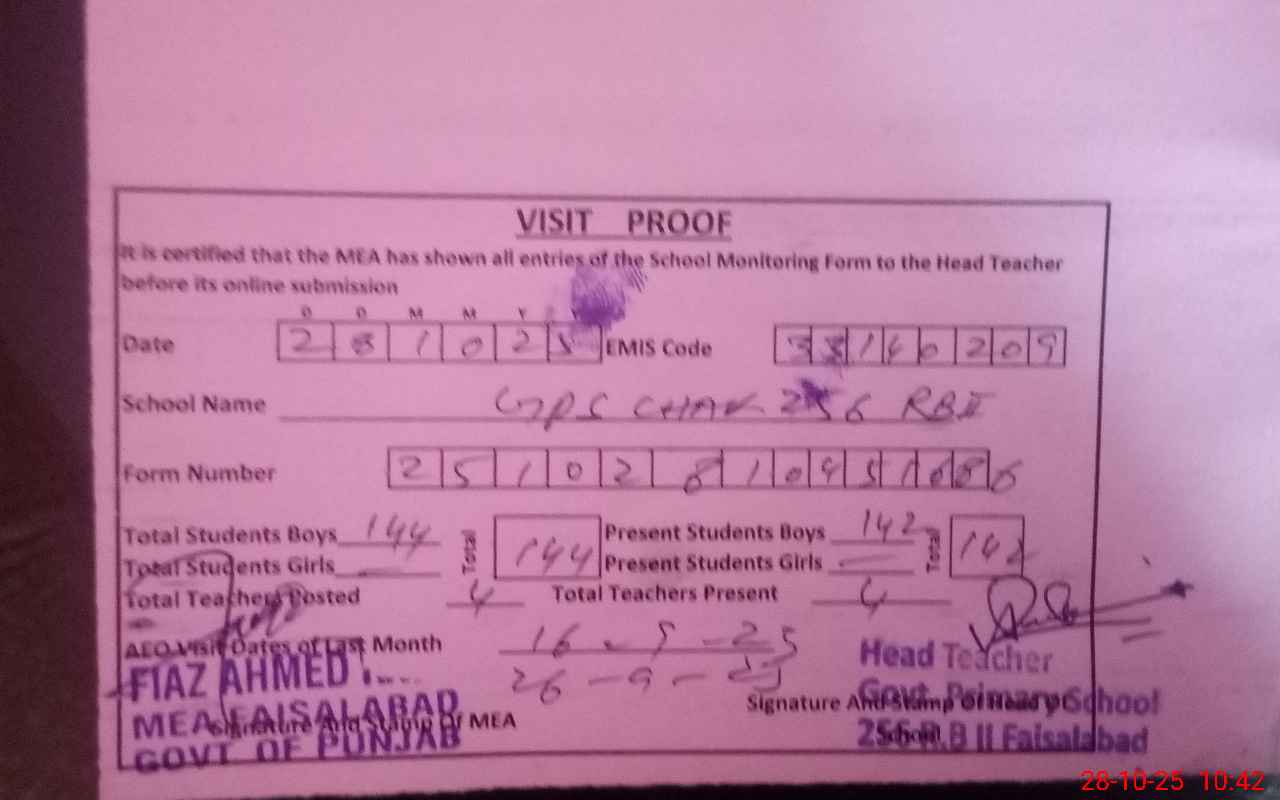 VISIT PROOF
It is certified that the MEA has shown all entries of the School Monitoring Form to the Head Teacher
before its online submission
D D M M Y
Date 2 8 1 0 2 5 EMIS Code 3 3 1 6 0 2 0 9
School Name GPS CHAK 256 RB II
Form Number 2 5 1 0 2 8 1 0 4 5 1 6 8 6
Total Students Boys 144 Total 144 Present Students Boys 142 Total 142
Total Students Girls — Present Students Girls —
Total Teachers Posted 4 Total Teachers Present 4
AEO Visit Dates of Last Month 16 - 9 - 25
26 - 9 - 25
FIAZ AHMED
MEA FAISALABAD
GOVT OF PUNJAB
Signature And Stamp Of MEA
Head Teacher
Govt. Primary School
256 R.B II Faisalabad
Signature And Stamp Of Head Of
School
28-10-25 10:42